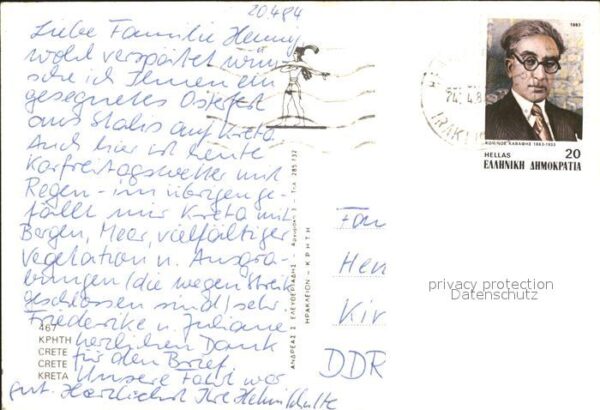 20.4.84
Liebe Familie Henny,
wohl verspätet wün-
sche ich Ihnen ein
gesegnetes Osterfest
aus Stalis auf Kreta.
Auch hier ist heute
Karfreitagswetter mit
Regen - im übrigen ge-
fällt mir Kreta mit
Bergen, Meer, vielfältiger
Vegetation u. Ausgra-
bungen (die wegen Streik
geschlossen sind) sehr.
Friederike u. Juliane
herzlichen Dank
für den Brief.
Unsere Fahrt war
gut. Herzlichst Ihre
467
ΚΡΗΤΗ
CRETE
CRETE
KRETA
ΑΝΔΡΕΑΣ Σ. ΕΛΕΥΘΕΡΙΑΔΗΣ - Τηλ. 285-732
ΗΡΑΚΛΕΙΟΝ - ΚΡΗΤΗ
Fam
Hen
Kir
DDR
1983
ΚΩΝ/ΝΟΣ ΚΑΒΑΦΗΣ 1863-1933
HELLAS 20
ΕΛΛΗΝΙΚΗ ΔΗΜΟΚΡΑΤΙΑ
privacy protection
Datenschutz